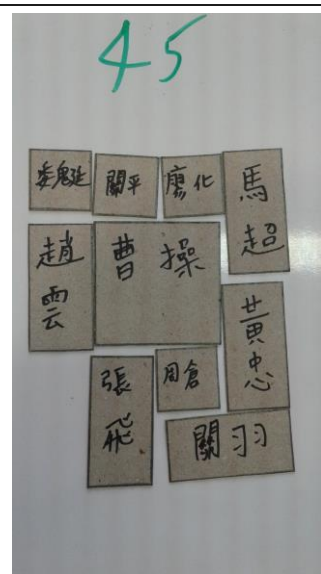 45
魏延
關平
廖化
馬超
趙雲
曹操
黃忠
張飛
周倉
關羽